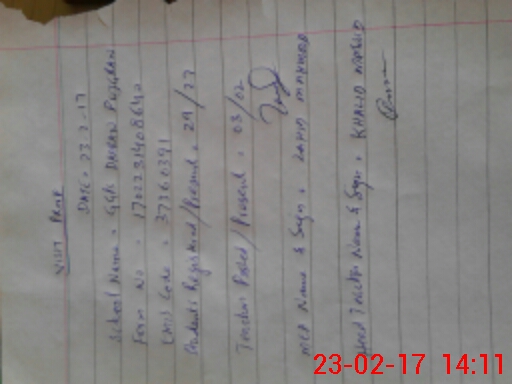 VISIT PROOF
DATE = 23-2-17
School Name = GGPS DHIBAN
Form No = 17022314086
EMIS Code = 37360391
Students Registered / Present = 29/27
Teachers Posted / Present = 03/02
MEA Name & Sign = ZAHID MAHMOOD
Head Teacher Name & Sign = KHALID
23-02-17 14:11